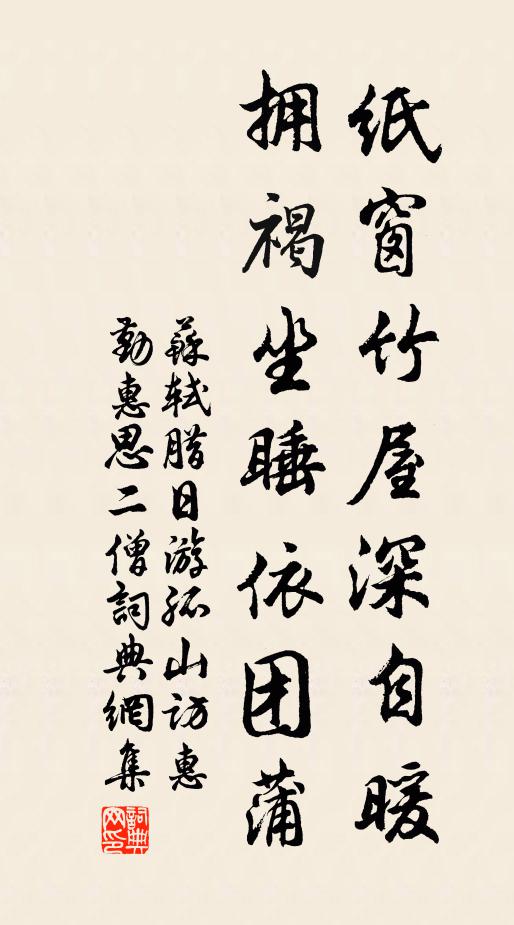 紙窗竹屋深自暖
拥褐坐睡依团蒲
蘇軾腊日游孤山訪惠
勤惠思二僧詞典網集
詞典
网印